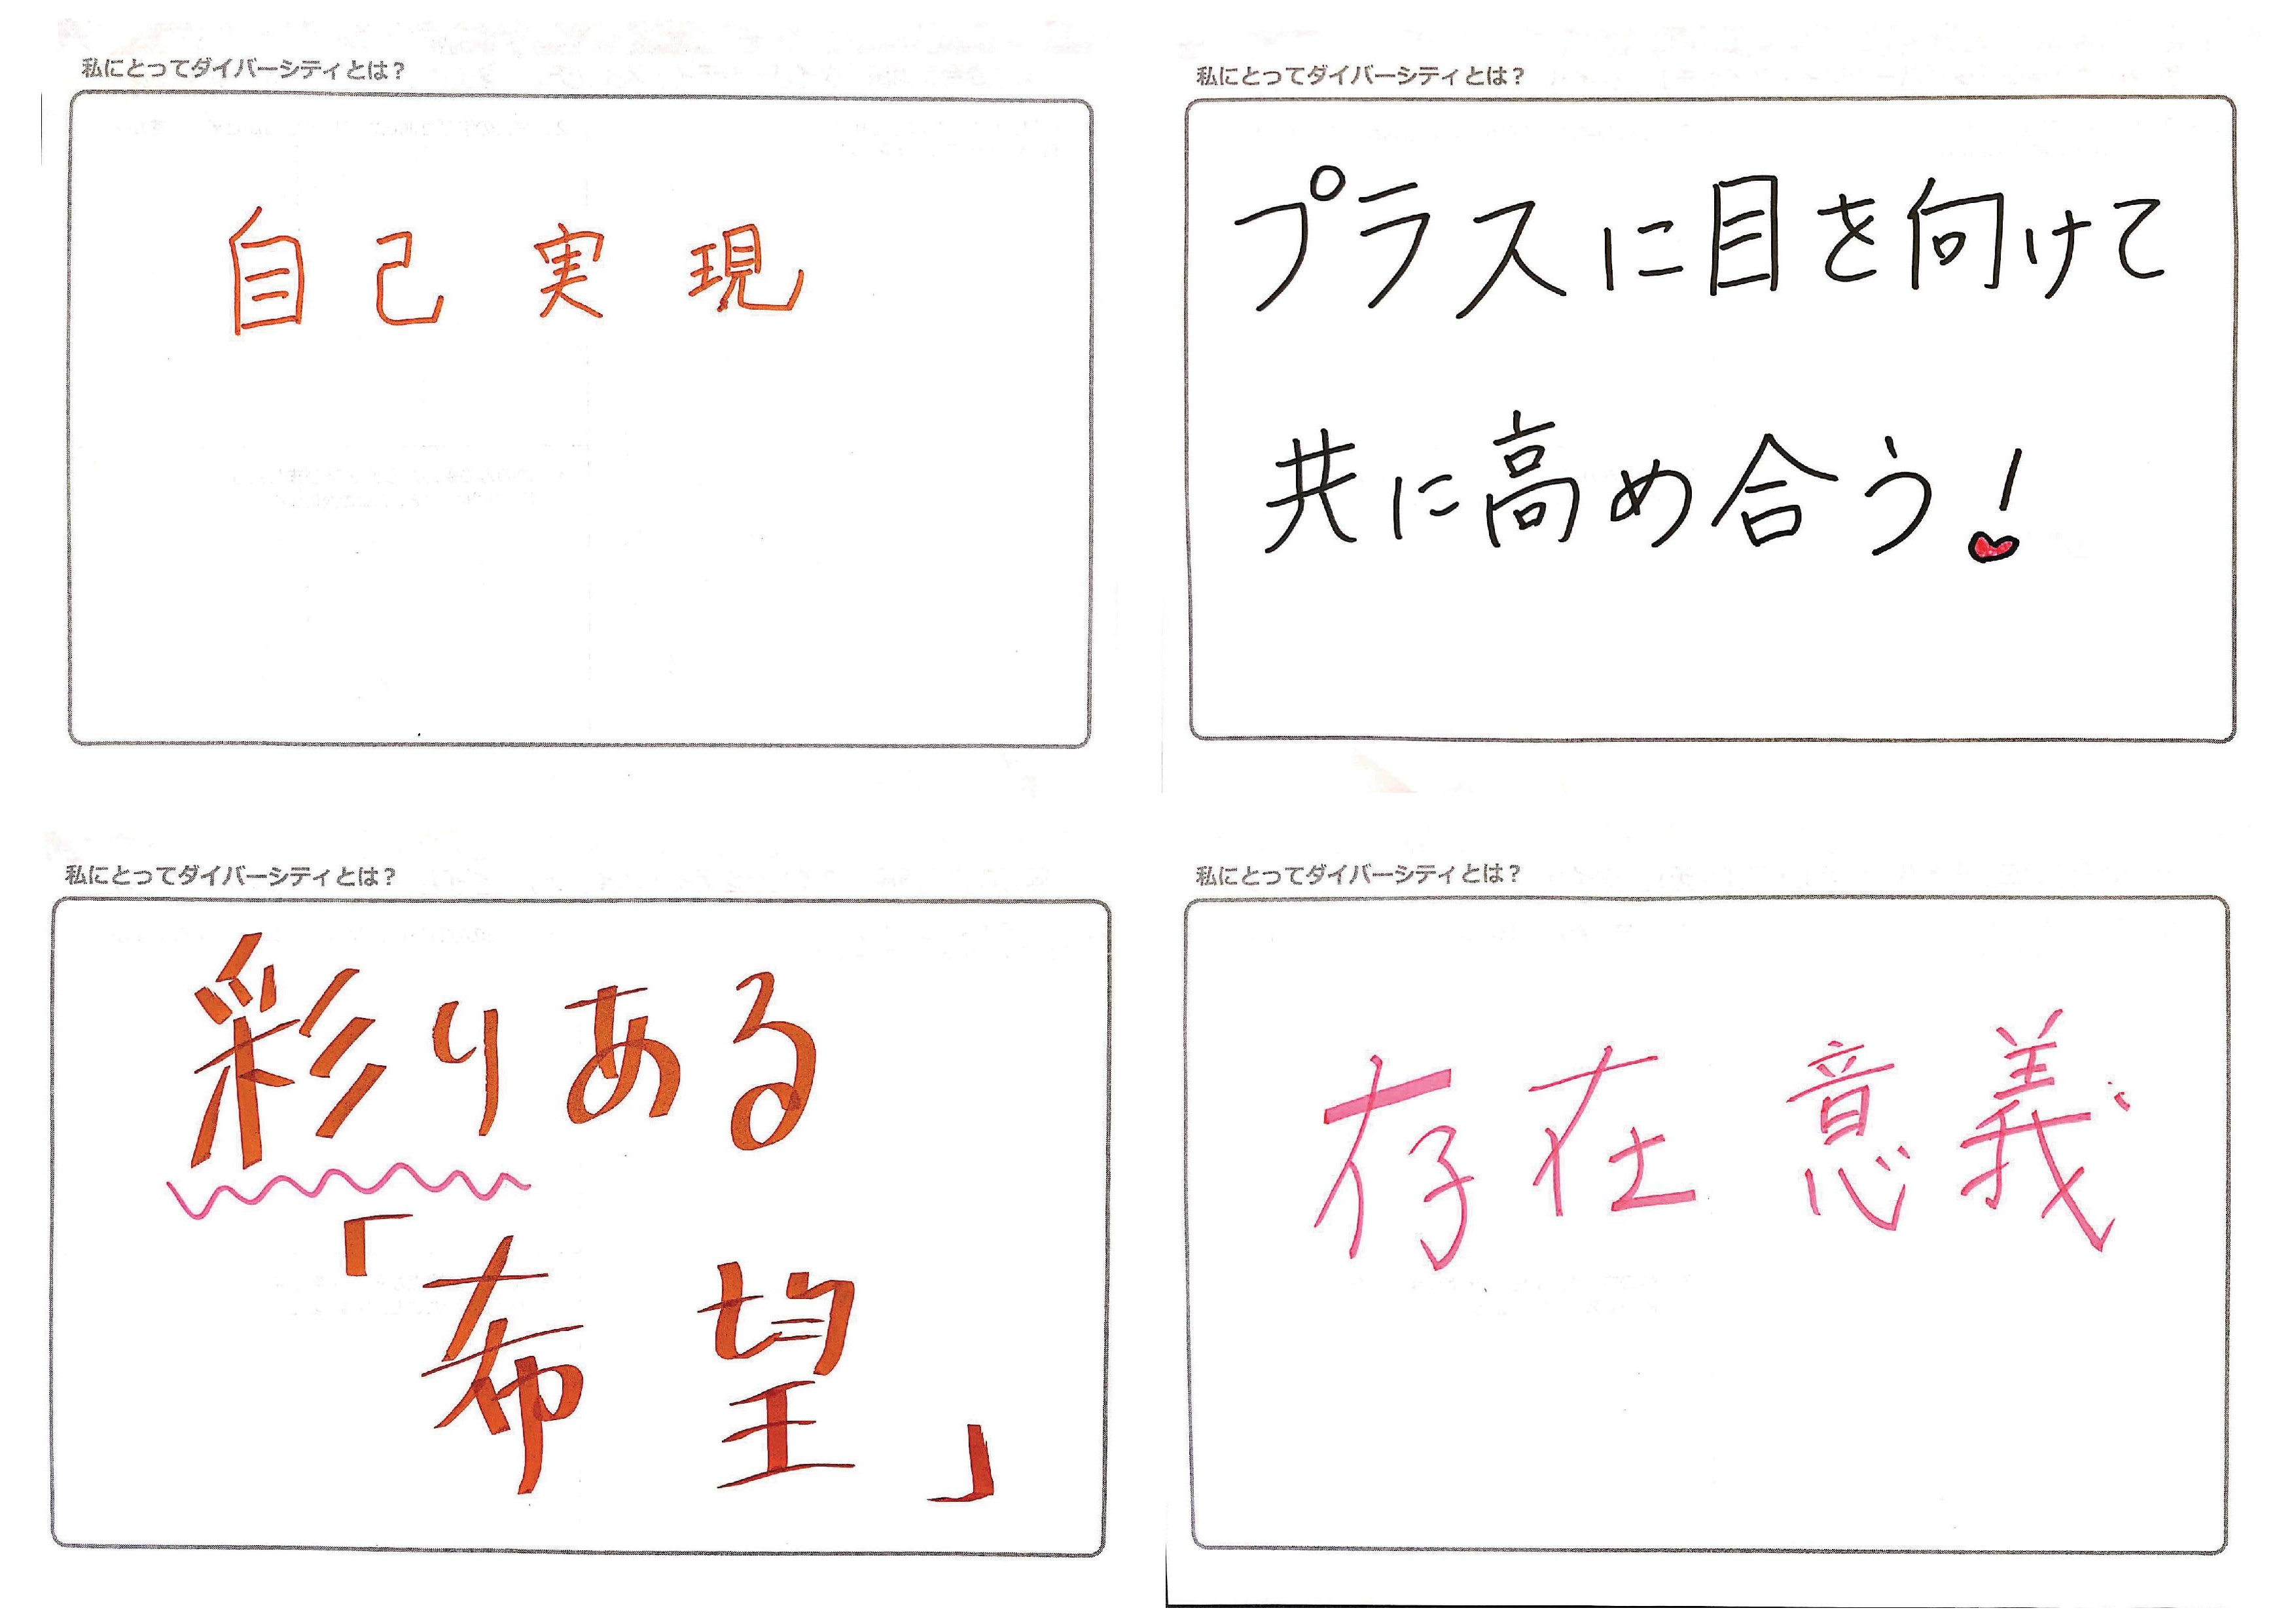 私にとってダイバーシティとは？
自己実現
私にとってダイバーシティとは？
プラスに目を向けて
共に高め合う！
私にとってダイバーシティとは？
彩りある
「希望」
私にとってダイバーシティとは？
存在意義